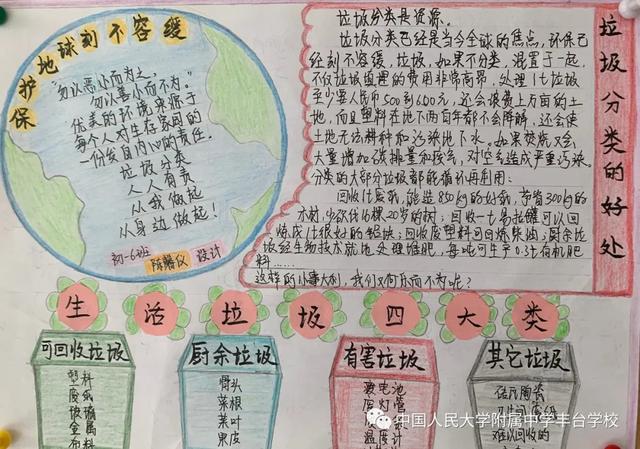 保护地球刻不容缓
"勿以恶小而为之，
勿以善小而不为。"
优美的环境来源于
每个人对生存家园的
一份发自内心的责任.
垃圾分类
人人有责
从我做起
从身边做起!
初一6班
设计
垃圾分类是资源。
垃圾分类已经是当今全球的焦点，环保已
经刻不容缓，垃圾，如果不分类，混置于一起，
不仅垃圾填埋的费用非常高昂，处理1t垃圾
至少要人民币500到600元，还会浪费上方面的土
地，而且塑料在地下两百年都不会降解，还会使
土地无法耕种和污染地下水。如果焚烧又会
大量增加碳排量和残渣，对空气造成严重污染。
分类的大部分垃圾都能循环再利用：
回收1t废纸，能造850kg的好纸，节省300kg的
木材，少砍伐
20岁的树；回收一t易拉罐可以回
炼成1t很好的铝块；回收废塑料可回炼柴油；厨余垃
圾经生物技术就地处理堆肥，每吨可生产0.3t有机肥
料......
这样的小事大利，我们又何乐而不为呢？
垃圾分类的好处
生活垃圾四大类
可回收垃圾
塑料
废纸
玻璃
金属
布料
厨余垃圾
骨头
菜根
菜叶
果皮
有害垃圾
废电池
废灯管
温度计
其它垃圾
砖瓦陶瓷
难以回收的
中国人民大学附属中学丰台学校